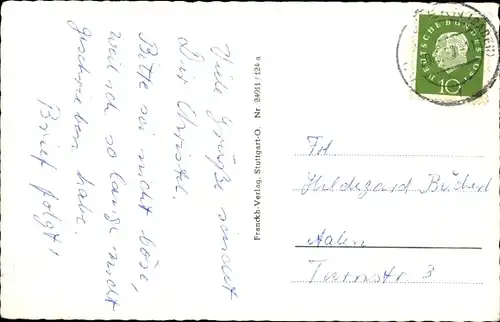 Viele Grüße sendet
Dir Christel.
Bitte sei nicht böse,
weil ich so lange nicht
geschrieben habe.
Brief folgt!
Franckh-Verlag, Stuttgart-O. Nr. 24911/124 a
DEUTSCHE BUNDESPOST
10
Hildegard
Aalen
Turnstr 3